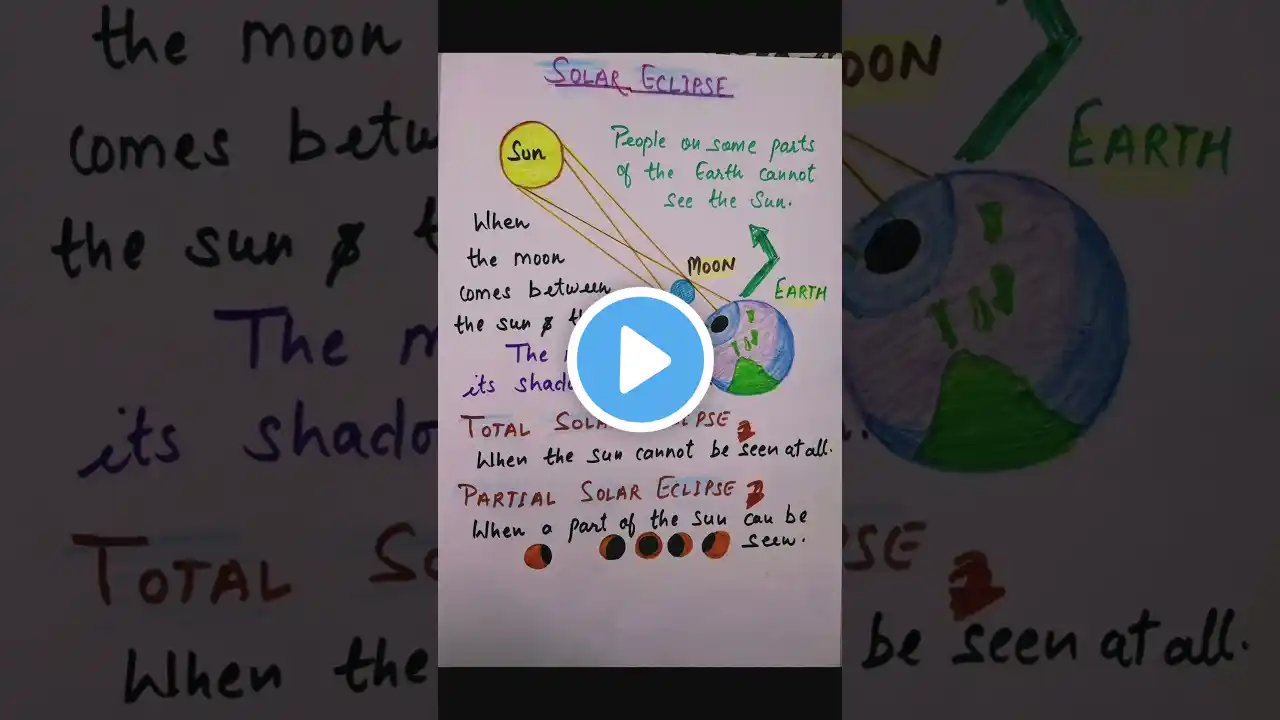 SOLAR ECLIPSE
Sun
People on some parts
of the Earth cannot
see the Sun.
When
the moon
comes between
the sun &
MOON
EARTH
The
its
TOTAL SOLAR ECLIPSE
When the sun cannot be seen at all.
PARTIAL SOLAR ECLIPSE
When a part of the sun can be
seen.